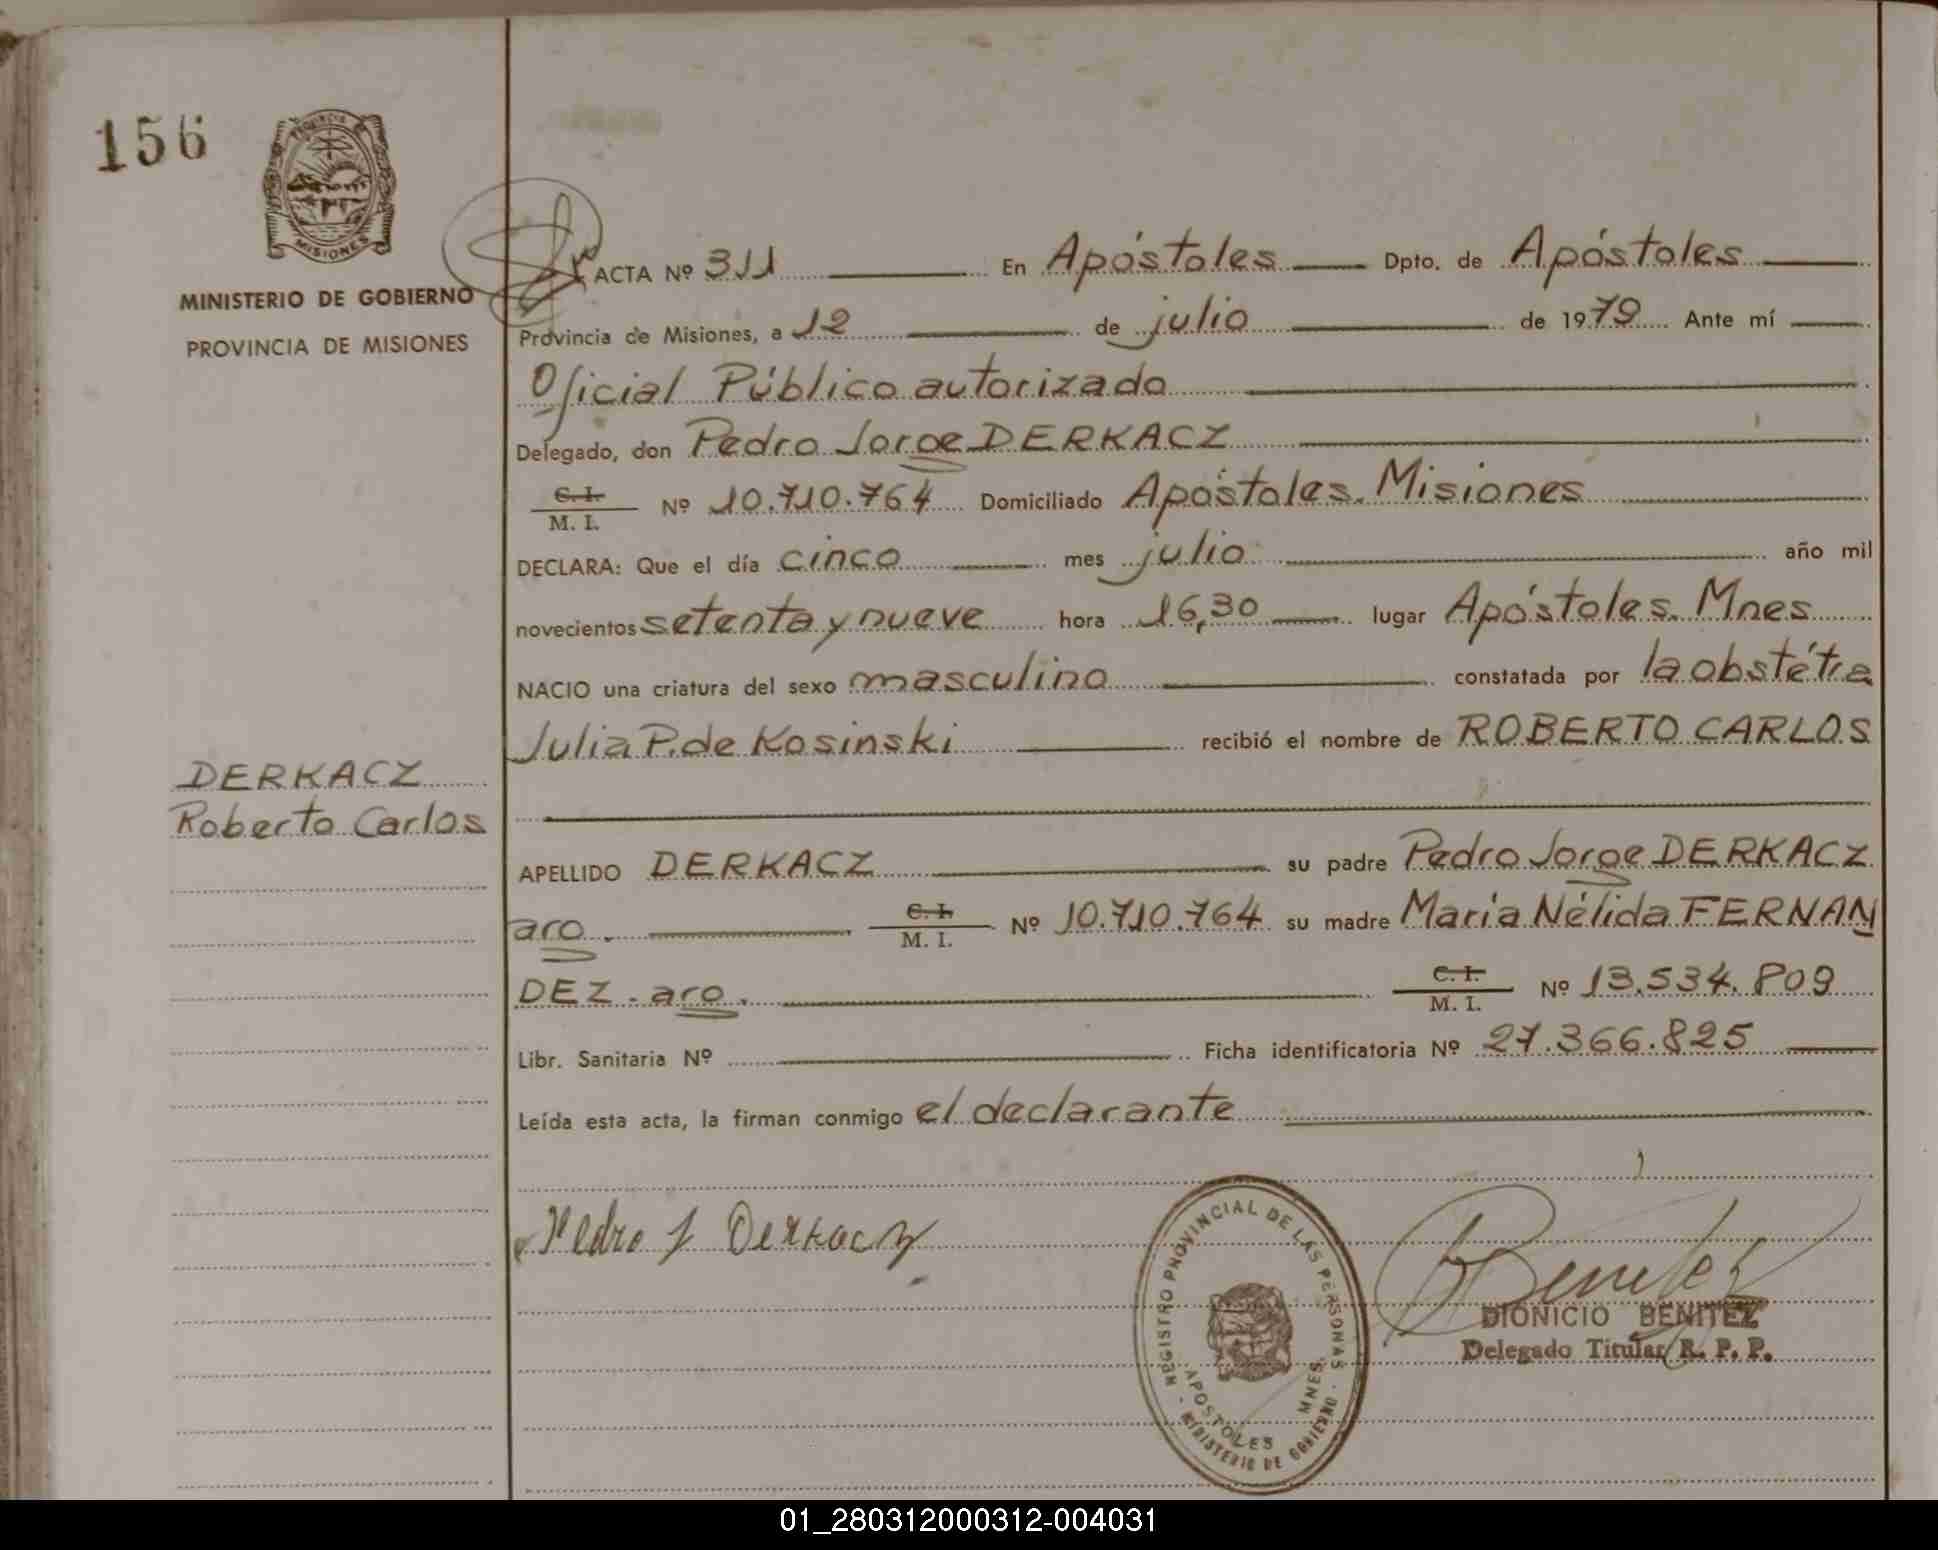 156
PROVINCIA DE
MISIONES
MINISTERIO DE GOBIERNO
PROVINCIA DE MISIONES
DERKACZ
Roberto Carlos
ACTA Nº 311 En Apóstoles Dpto. de Apóstoles
Provincia de Misiones, a 12 de julio de 1979 Ante mí
Oficial Público autorizado
Delegado, don Pedro Jorge DERKACZ
C. I.
M. I. Nº 10.710.764 Domiciliado Apóstoles. Misiones
DECLARA: Que el día cinco mes julio año mil
novecientos setenta y nueve hora 16,30 lugar Apóstoles. Mnes
NACIO una criatura del sexo masculino constatada por la obstétra
Julia P. de Kosinski recibió el nombre de ROBERTO CARLOS
APELLIDO DERKACZ su padre Pedro Jorge DERKACZ
aro. C. I.
M. I. Nº 10.710.764 su madre María Nélida FERNAN
DEZ - aro. C. I.
M. I. Nº 13.534.809
Libr. Sanitaria Nº Ficha identificatoria Nº 27.366.825
Leída esta acta, la firman conmigo el declarante
Pedro J Derkacz
REGISTRO PROVINCIAL DE LAS PERSONAS
APOSTOLES MNES.
MINISTERIO DE GOBIERNO
Benitez
DIONICIO BENITEZ
Delegado Titular R. P. P.
01_280312000312-004031